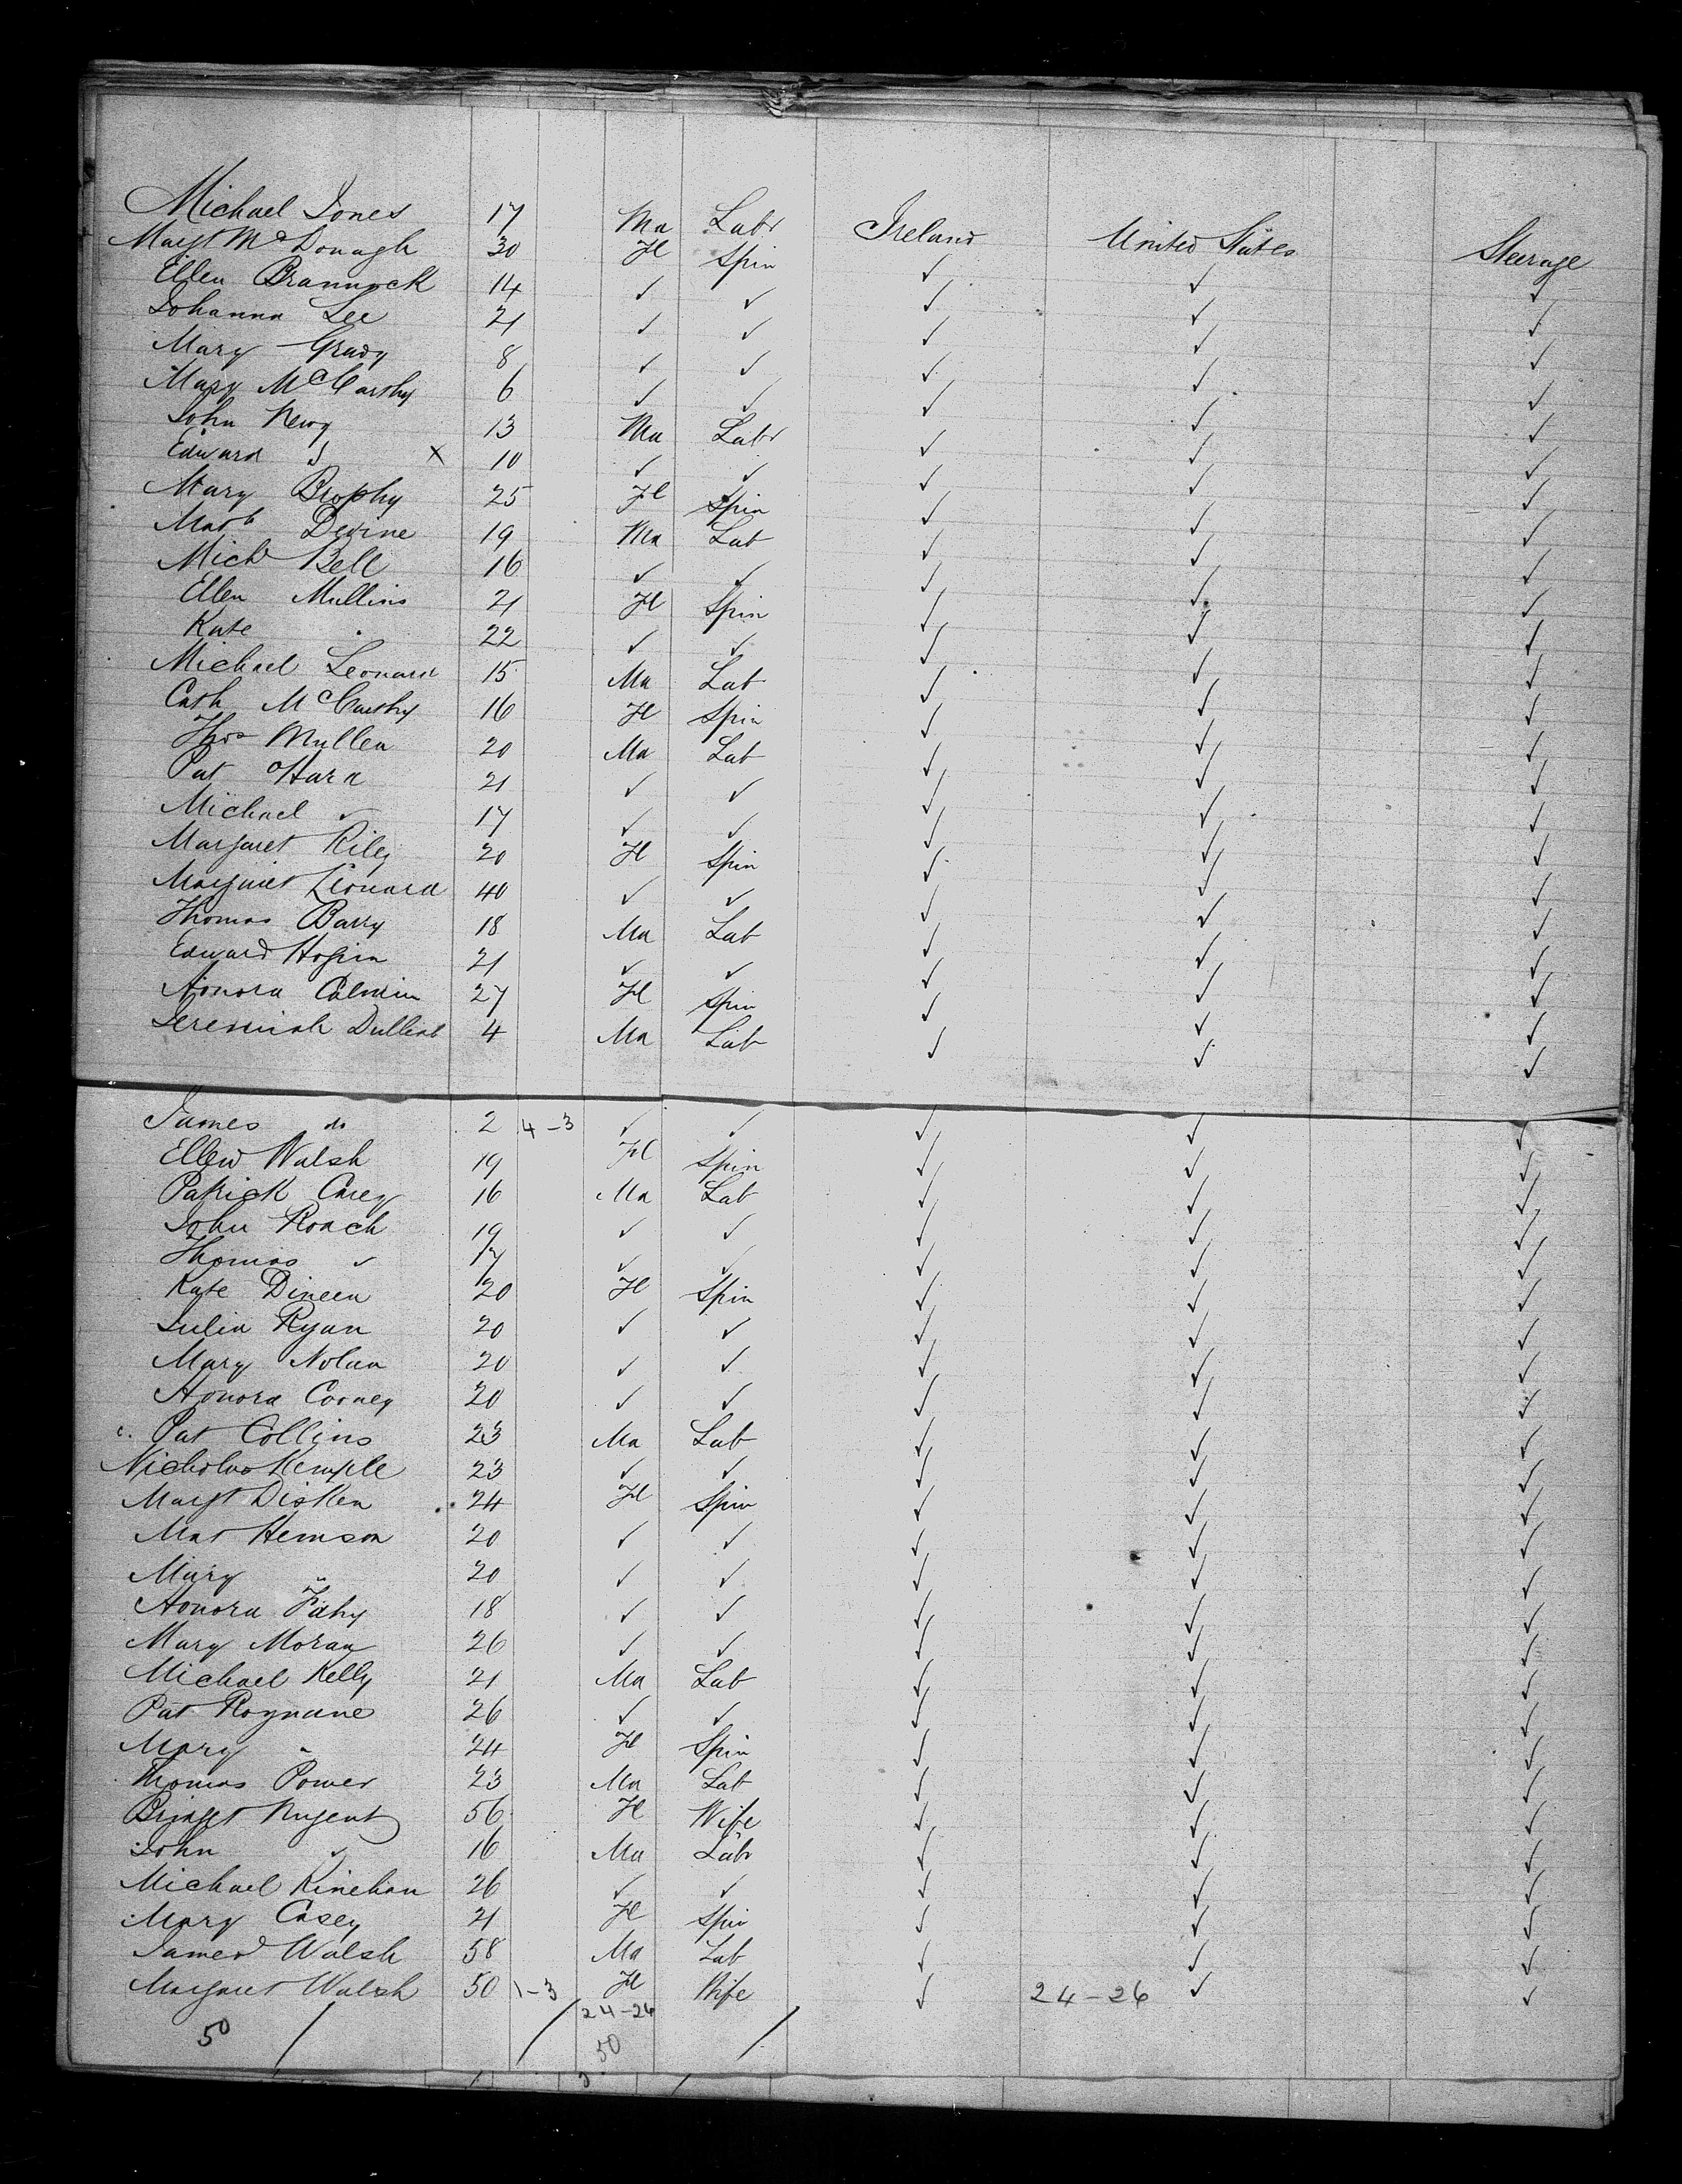 Michael Jones 17 Ma Labr Ireland United States Steerage
Margt McDonagh 30 Fl Spin ✓ ✓ ✓
Ellen Brannock 14 ✓ ✓ ✓ ✓ ✓
Johanna Lee 21 ✓ ✓ ✓ ✓ ✓
Mary Grady 8 ✓ ✓ ✓ ✓ ✓
Mary McCarthy 6 ✓ ✓ ✓ ✓ ✓
John 13 Ma Labr ✓ ✓ ✓
Edward X 10 ✓ ✓ ✓ ✓ ✓
Mary Brophy 25 Fl Spin ✓ ✓ ✓
Devine 19 Ma Lab ✓ ✓ ✓
Michl Bell 16 ✓ ✓ ✓ ✓ ✓
Ellen Mullins 21 Fl Spin ✓ ✓ ✓
Kate 22 ✓ ✓ ✓ ✓ ✓
Michael Leonard 15 Ma Lab ✓ ✓ ✓
Cath McCarthy 16 Fl Spin ✓ ✓ ✓
Thos Mullen 20 Ma Lab ✓ ✓ ✓
Pat OHara 21 ✓ ✓ ✓ ✓ ✓
Michael ✓ 17 ✓ ✓ ✓ ✓ ✓
Margaret Riley 20 Fl Spin ✓ ✓ ✓
Margaret Leonard 40 ✓ ✓ ✓ ✓ ✓
Thomas Barry 18 Ma Lab ✓ ✓ ✓
Edward Hogan 21 ✓ ✓ ✓ ✓ ✓
Honora 27 Fl Spin ✓ ✓ ✓
Jeremiah 4 Ma Lab ✓ ✓ ✓
James do 2 4-3 ✓ ✓ ✓ ✓ ✓
Ellen Walsh 19 Fl Spin ✓ ✓ ✓
Patrick Carey 16 Ma Lab ✓ ✓ ✓
John Roach 19 ✓ ✓ ✓ ✓ ✓
Thomas ✓ 17 ✓ ✓ ✓ ✓ ✓
Kate Dineen 20 Fl Spin ✓ ✓ ✓
Julia Ryan 20 ✓ ✓ ✓ ✓ ✓
Mary Nolan 20 ✓ ✓ ✓ ✓ ✓
Honora Cooney 20 ✓ ✓ ✓ ✓ ✓
Pat Collins 23 Ma Lab ✓ ✓ ✓
Nicholas Kemple 23 ✓ ✓ ✓ ✓ ✓
Margt Disken 24 Fl Spin ✓ ✓ ✓
Mat Hemson 20 ✓ ✓ ✓ ✓ ✓
Mary " 20 ✓ ✓ ✓ ✓ ✓
Honora Fahy 18 ✓ ✓ ✓ ✓ ✓
Mary Moran 26 ✓ ✓ ✓ ✓ ✓
Michael Kelly 21 Ma Lab ✓ ✓ ✓
Pat Roynane 26 ✓ ✓ ✓ ✓ ✓
Mary " 24 Fl Spin ✓ ✓ ✓
Thomas Power 23 Ma Lab ✓ ✓ ✓
Bridget Nugent 56 Fl Wife ✓ ✓ ✓
John ✓ 16 Ma Labr ✓ ✓ ✓
Michael Kinehan 26 ✓ ✓ ✓ ✓ ✓
Mary Casey 21 Fl Spin ✓ ✓ ✓
James Walsh 58 Ma Lab ✓ ✓ ✓
Margaret Walsh 50 1-3 Fl Wife ✓ 24-26 ✓ ✓
50 / / 24-26 /
50